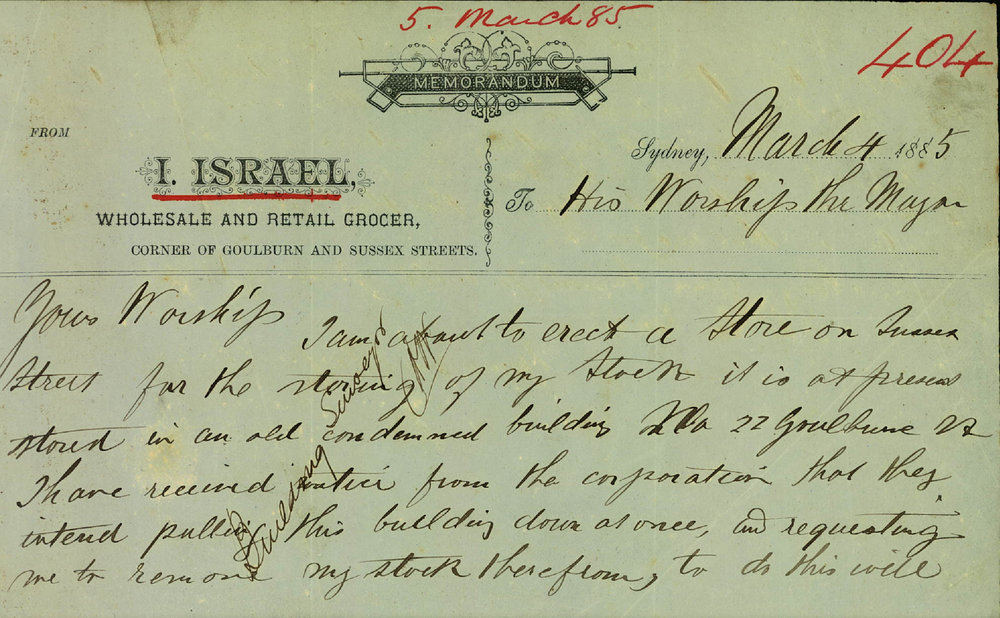 5. March 85.
404
MEMORANDUM
FROM
I. ISRAEL,
WHOLESALE AND RETAIL GROCER,
CORNER OF GOULBURN AND SUSSEX STREETS.
Sydney, March 4 1885
To His Worship the Mayor
Yours Worship
I am about to erect a Store on Sussex
Street for the storing of my Stock it is at present
stored in an old condemned building No 22 Goulburn St
I have received notice from the corporation that they
intend pulling this building down at once, and requesting
me to remove my stock therefrom, to do this will
Building Surveyor